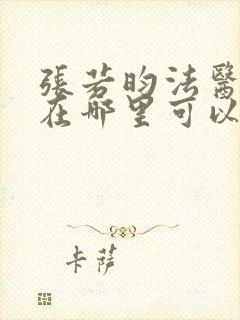 張若昀法醫
在哪里可以
卡薩